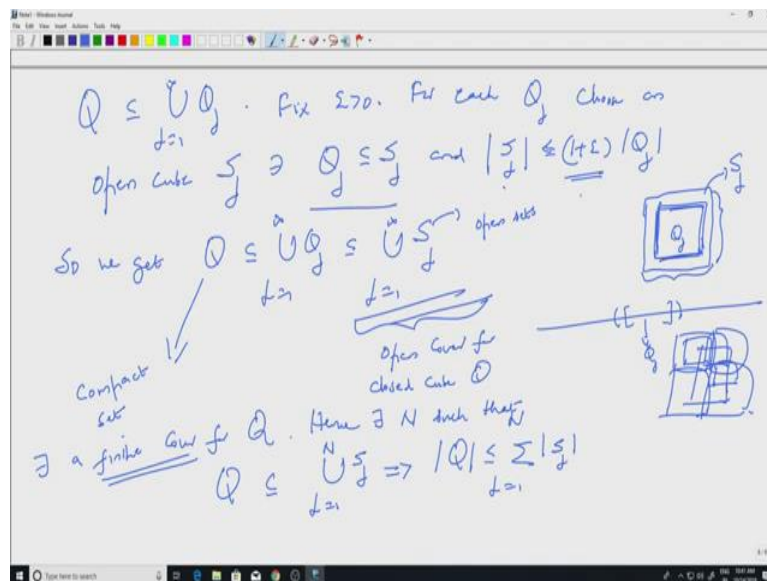 Note1 - Windows Journal
File Edit View Insert Actions Tools Help
Q ⊆ ∞∪j=1 Qj . Fix ε>0. For each Qj choose an
open cube Sj ∋ Qj ⊆ Sj and |Sj| ≤ (1+ε) |Qj|
Sj
Qj
So we get Q ⊆ ∞∪j=1 Qj ⊆ ∞∪j=1 Sj → open sets
([ ])
Qj
open cover for
closed cube Q
Compact
set
∃ a finite cover for Q. Hence ∃ N such that
Q ⊆ N∪j=1 Sj ⇒ |Q| ≤ N∑j=1 |Sj|
Type here to search